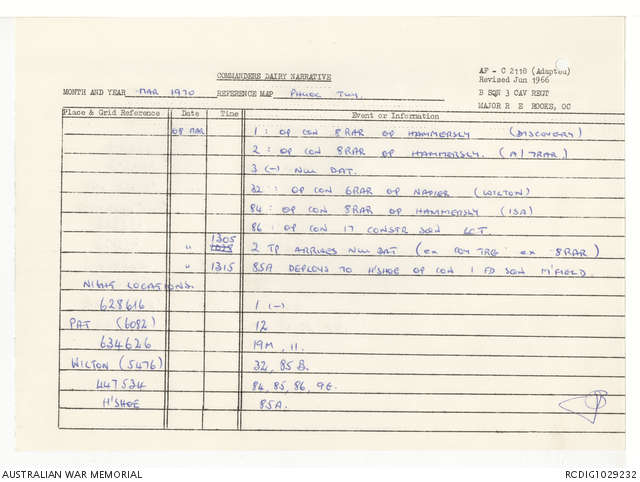 COMMANDERS DAIRY NARRATIVE
AF - C 2118 (Adapted)
Revised Jun 1966
MONTH AND YEAR MAR 1970 REFERENCE MAP PHUOC TUY.
B SQN 3 CAV REGT
MAJOR R E ROOKS, OC
Place & Grid Reference Date Time Event or Information
08 MAR 1 : OP CON 8RAR OP HAMMERSLY (DISCOVERY)
2 : OP CON 8RAR OP HAMMERSLY. (A/7RAR)
3 (-) NUI DAT.
32 : OP CON 6RAR OP NAPIER (WILTON)
84 : OP CON 8RAR OP HAMMERSLY (ISA)
86 : OP CON 17 CONSTR SQN LCT.
1305
" 2 TP ARRIVES NUI DAT (ex COY TRG ex 8RAR)
" 1315 85A DEPLOYS TO H'SHOE OP CON 1 FD SQN M'FIELD.
NIGHT LOCATIONS.
628616 1 (-)
PAT (6082) 12
634626 19M, 11.
WILTON (5476) 32, 85B.
447534 84, 85, 86, 9E.
H'SHOE 85A.
AUSTRALIAN WAR MEMORIAL RCDIG1029232